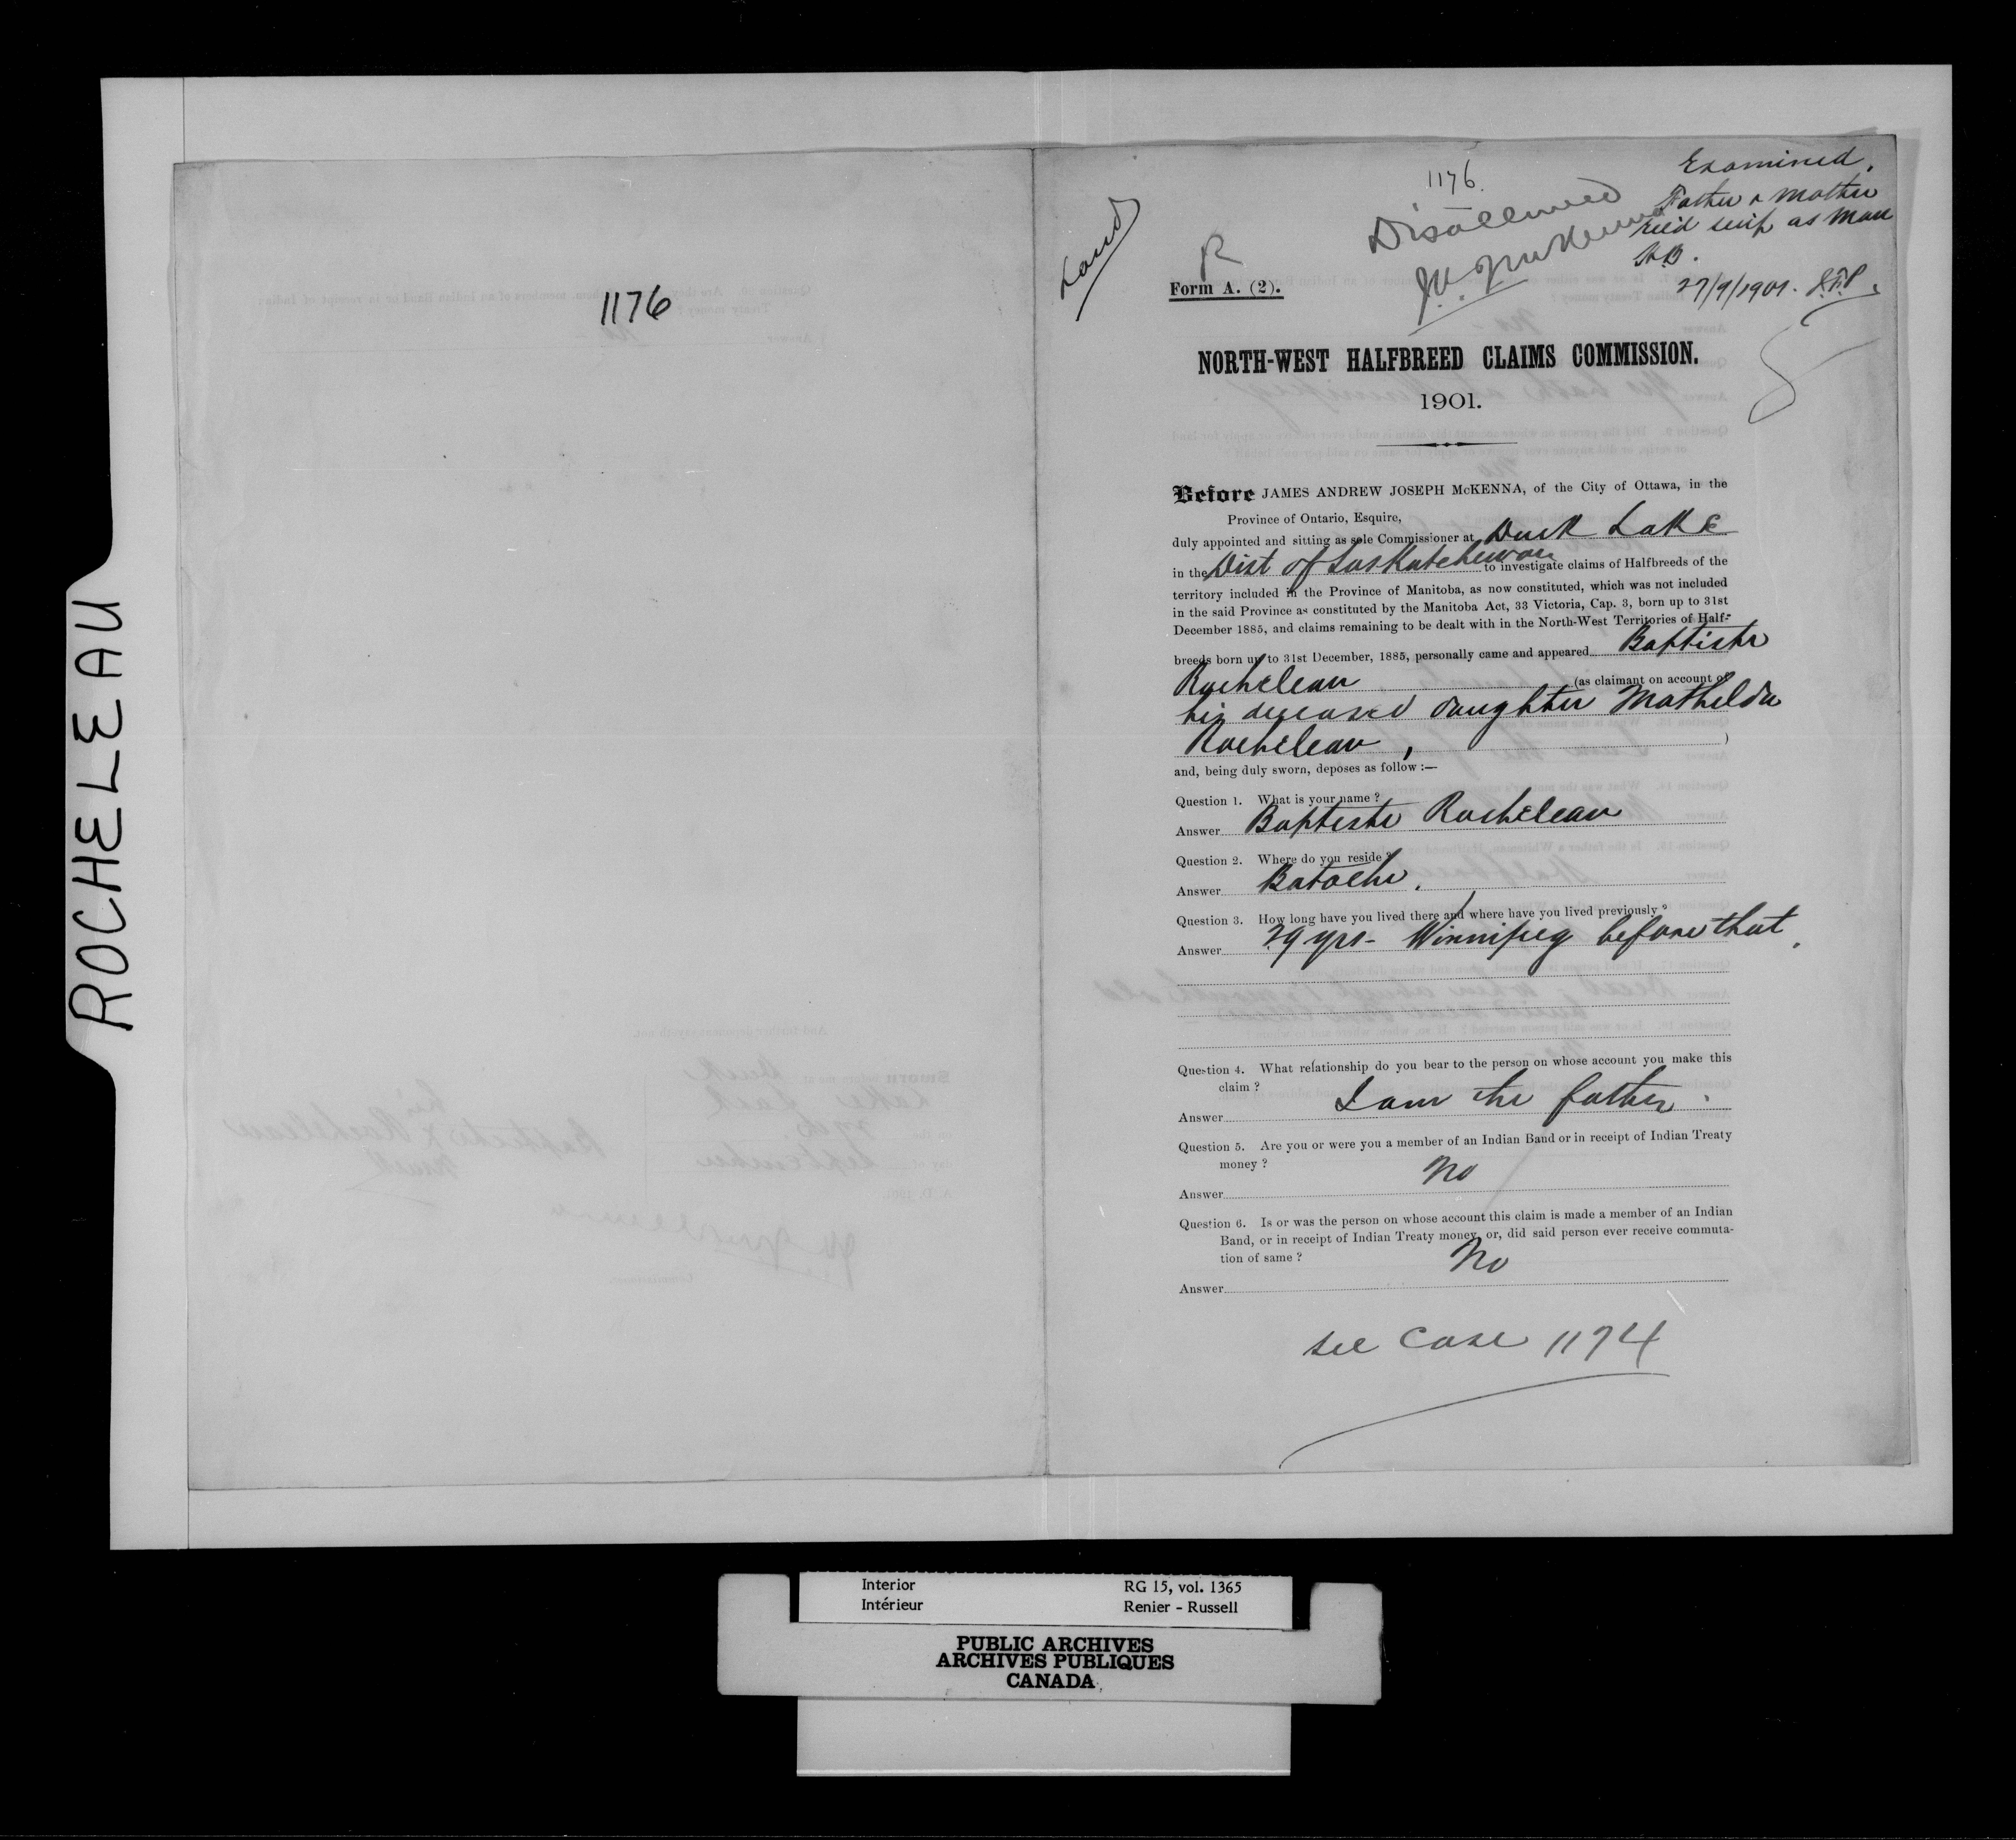 ROCHELEAU
1176
Land
1176.
Disallowed
J.A.J. McKenna
Examined.
Father & Mother
rec'd scrip as Man
H.B.
27/9/1901.
R
Form A. (2).
NORTH-WEST HALFBREED CLAIMS COMMISSION.
1901.
Before JAMES ANDREW JOSEPH McKENNA, of the City of Ottawa, in the
Province of Ontario, Esquire,
duly appointed and sitting as sole Commissioner at Duck Lake
in the Dist of Saskatchewan to investigate claims of Halfbreeds of the
territory included in the Province of Manitoba, as now constituted, which was not included
in the said Province as constituted by the Manitoba Act, 33 Victoria, Cap. 3, born up to 31st
December 1885, and claims remaining to be dealt with in the North-West Territories of Half-
breeds born up to 31st December, 1885, personally came and appeared Baptiste
Rocheleau (as claimant on account of
his deceased daughter Mathilda
Rocheleau, )
and, being duly sworn, deposes as follow :—
Question 1. What is your name ?
Answer Baptiste Rocheleau
Question 2. Where do you reside ?
Answer Batoche.
Question 3. How long have you lived there and where have you lived previously ?
Answer 29 yrs - Winnipeg before that.
Question 4. What relationship do you bear to the person on whose account you make this
claim ?
Answer I am the father.
Question 5. Are you or were you a member of an Indian Band or in receipt of Indian Treaty
money ?
Answer No
Question 6. Is or was the person on whose account this claim is made a member of an Indian
Band, or in receipt of Indian Treaty money, or, did said person ever receive commuta-
tion of same ?
Answer No
see Case 1174
Interior RG 15, vol. 1365
Intérieur Renier - Russell
PUBLIC ARCHIVES
ARCHIVES PUBLIQUES
CANADA